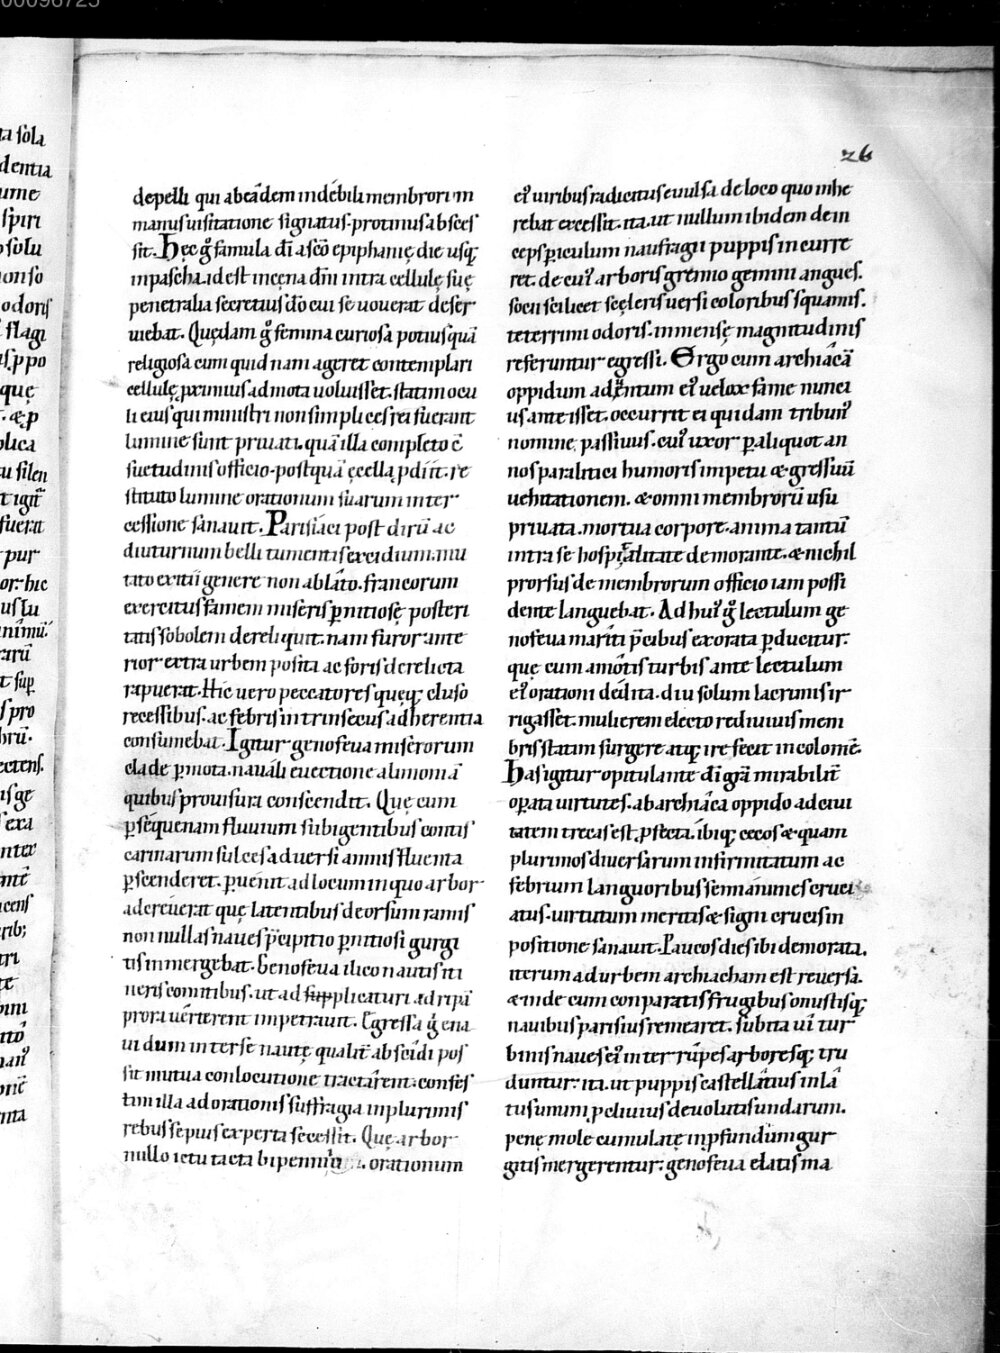 00098725
26
ta sola
dentia
ume
spiri
solu
onso
odoris
flagi
s. ppo
quę
. & p
blica
u silen
t igit̄
fuerat
pur
or. hic
us lu
nimū.
rarū
t sup̱
s pro
brū.
ectens.
is ge
exa
nter
mē
cens
rib;
tri
te
mi
ttō
nan᷒
nta
depelli qui abeādem indébili membrorum
manus uisitatione signatus. protinus absces
sit. Hęc g̊ famula dī a sc̄o epiphanię die usq;
in pascha. id est in cęna dn̄i intra cellulę suę
penetralia secretius dō cui se uouerat deser
uiebat. Quędam g̊ femina curiosa potius quā
religiosa cum quid nam ageret contemplari
cellulę ꝓximius admota uoluisset. statim ocu
li eius qui ministri non simplices rei fuerant
lumine sunt priuati. quā illa completo c̄
suetudinis officio. postquā ę cęlla ꝓdiit. re
stituto lumine orationum suarum inter
cessione sanauit. Parisiaci post dirū ac
diuturnum belli tumentis excidium. mu
tato exitii genere non ablato. francorum
exercitus famem miseris p̱nitiosę posteri
tatis sobolem dereliquit. nam furor ante
rior extra urbem posita ac foris derelicta
rapuerat. Hic uero peccatores quęq; cluso
recessibus. ac febris intrinsecus adherentia
consumebat. Igitur genofeua miserorum
clade p̱mota. nauáli euectione alimoniā
quibus prouisura conscendit. Quę cum
p̱ séquenam fluuium subigentibus contis
carinarum sulces aduersi amnis fluenta
p̱scenderet. p̱uenit ad locum in quo arbor
adcreuerat quę latentibus deorsum ramis
non nullas naues p̄cipitio p̱nitiosi gurgi
tis inmergebat. Genofeua ilico nautis iti
neris comitibus. ut ad supplicaturi ad ripā
prora uérterent impetrauit. Egressa g̊ ena
ui dum inter se nautę qualit̄ abscidi pos
sit mutua conlocutione tractárent. confes
tim illa ad orationis suffragia in plurimis
rebus sepius experta secessit. Quę arbor
nullo ictu tacta bipennium. orationum
ei᷒ uiribus radicitus euulsa de loco quo inhe
rebat excessit. ita. ut nullum ibidem dein
ceps p̱iculum naufragii puppis incurre
ret. de cui᷒ arboris gremio gemini angues.
socii scilicet scęleris uersi coloribus squamis.
teterrimi odoris. inmensę magnitudinis
referuntur egressi. Ergo cum archiacā
oppidum aduentum ei᷒ uelox fame nunci
us ante isset. occurrit ei quidam tribun᷒
nomine passiuus. cui᷒ uxor p̱ aliquot an
nos paralitici humoris impetu & gressuū
uehitationem. & omni membrorū usu
priuata. mortua corpore. anima tantū
intra se hospitalitate demorante. & nichil
prorsus de membrorum officio iam possi
dente languebat. Ad hui᷒ g̊ lectulum ge
nofeua mariti p̄cibus exorata p̱ducitur.
quę cum amotis turbis ante lectulum
ei᷒ orationi dédita. diu solum lacrimis ir
rigasset. mulierem electo rediuiuis mem
bris statim surgere atq; ire fecit incolomē.
Has igitur opitulante dī grā mirabilit̄
op̱ata uirtutes. ab archiáca oppido ad ciui
tatem trecas est. ꝓfecta. ibiq; cecos & quam
plurimos diuersarum infirmitatum ac
febrium languoribus semianimes cruci
atus. uirtutum meritis & signi crucis in
positione sanauit. Paucos dies ibi demorata.
iterum ad urbem archiacham est reuersa.
& inde cum conparatis frugibus onustisq;
nauibus parisius remearet. subita ui tur
binis naues ei᷒ inter rupes arboresq; tru
duntur. ita. ut puppis castellatius in lá
tus unum ꝓcliuius deuolutis undarum.
penę mole cumulatę in ꝓfundum gur
gitis mergerentur. genofeua elatis ma